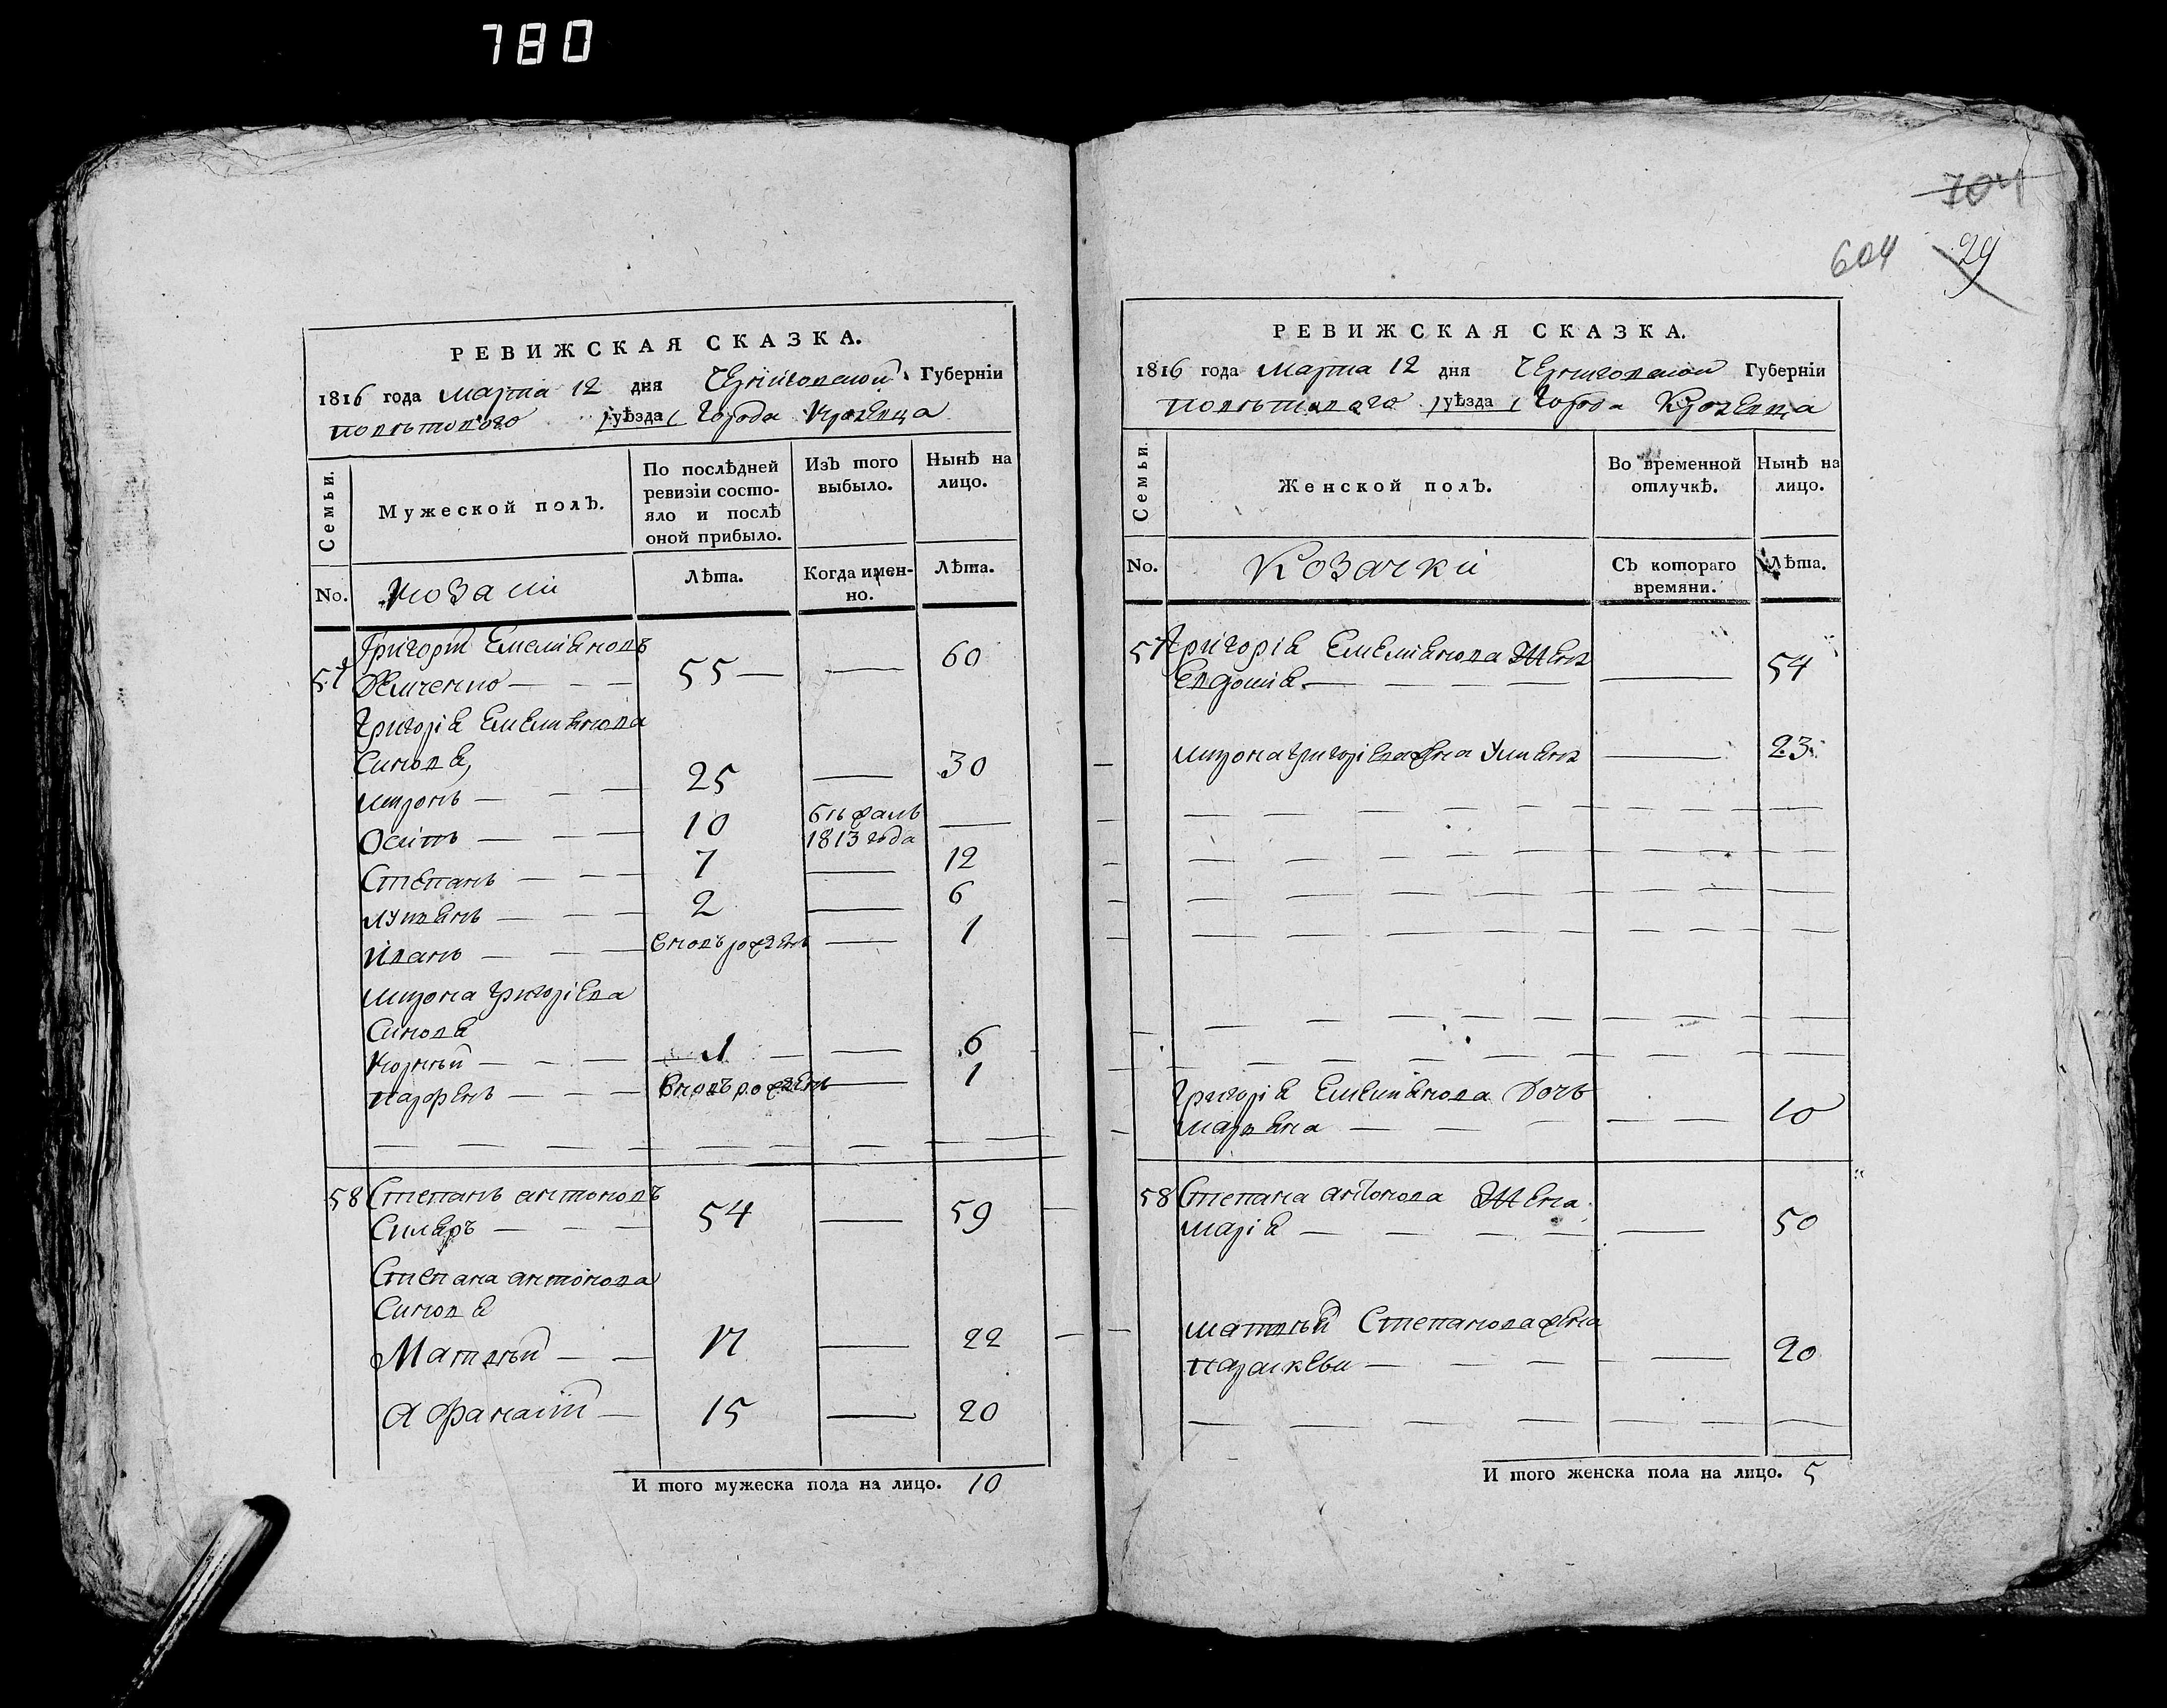 780
704
604 29
РЕВИЖСКАЯ СКАЗКА.
1816 года Марта 12 дня Черниговской Губерніи
поветового уѣзда Города Кролевца
Семьи.
Мужеской полъ.
По послѣдней ревизіи состо-
яло и послѣ
оной прибыло.
Изъ того
выбыло.
Нынѣ на
лицо.
No.
козаки
Лѣта.
Когда имен-
но.
Лѣта.
57 Григорій Емеліяновъ
55 60
Григорія Емеліянова
Синовя,
Миронъ 25 30
Осипъ 10
1813 года
Степанъ 7 12
Лукянъ 2 6
Иванъ вновь рожденъ 1
Мирона Григоріева
Синовя
Корнѣй 1 6
Парфенъ вновь рожденъ 1
58 Степанъ Антоновъ
54 59
Степана Антонова
Синовя
Матвѣй 17 22
Афанасій 15 20
И того мужеска пола на лицо. 10
РЕВИЖСКАЯ СКАЗКА.
1816 года Марта 12 дня Черниговской Губерніи
поветового уѣзда Города Кролевца
Семьи.
Женской полъ.
Во временной
отлучкѣ.
Нынѣ на
лицо.
No.
Козачки
Съ котораго
времяни.
Лѣта.
57 Григорія Емеліянова Жена
Евдокия 54
Мирона Григоріева жена Уляна 23
Григорія Емеліянова Дочь
10
58 Степана Антонова Жена
Марія 50
Матвѣя Степанова жена
Параскева 20
И того женска пола на лицо. 5